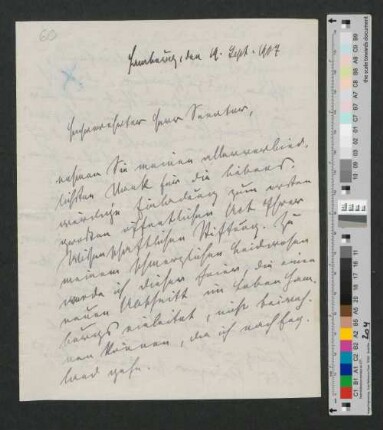 Hamburg, den 19. Sept. 1907
Hochverehrter Herr Senator,
nehmen Sie meinen allerverbind-
lichsten Dank für die liebens-
würdige Einladung zum ersten
großen öffentlichen Akt Ihrer
Wissenschaftlichen Stiftung. Zu
meinem schmerzlichen Leidwesen
werde ich dieser Feier, die einen
neuen Abschnitt im Leben Ham-
burgs einleitet, nicht beiwoh-
nen können, da ich nach Eng-
land gehe.